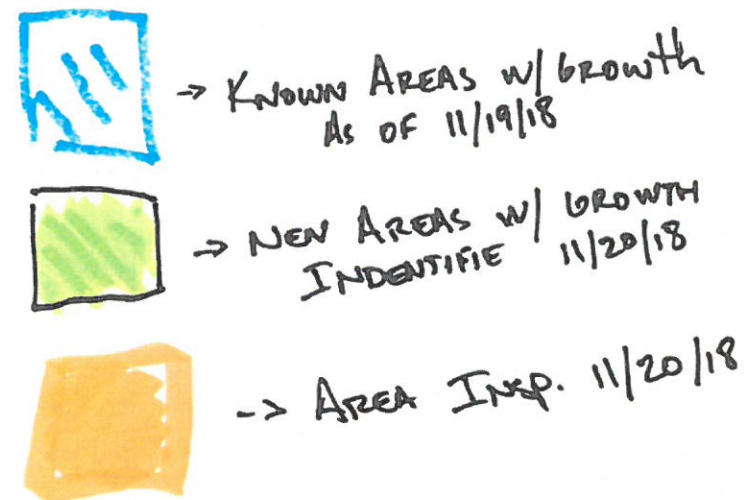 -> KNOWN AREAS W/ GROWTH
AS OF 11/19/18
-> NEW AREAS W/ GROWTH
INDENTIFIE 11/20/18
-> AREA INSP. 11/20/18